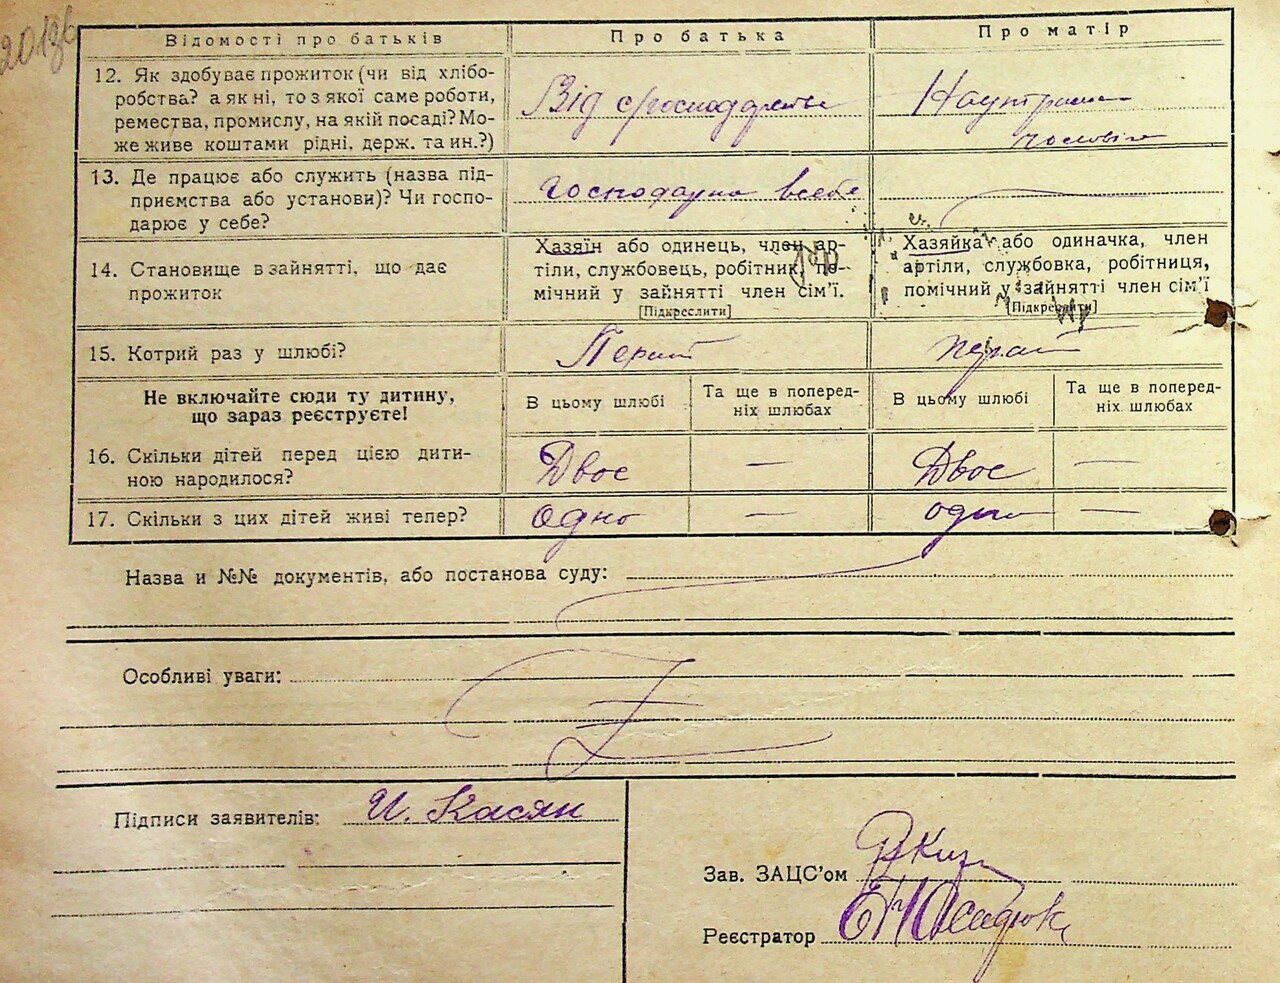 Відомості про батьків
Про батька
Про матір
12. Як здобуває прожиток (чи від хлібо-
робства? а як ні, то з якої саме роботи,
ремества, промислу, на якій посаді? Мо-
же живе коштами рідні, держ. та ин.?)
Від с/господарства
На утрим
чоловіка
13. Де працює або служить (назва під-
приємства або установи)? Чи госпо-
дарює у себе?
Господарює в себе
14. Становище в зайнятті, що дає
прожиток
Хазяїн або одинець, член ар-
тіли, службовець, робітник, по-
мічний у зайнятті член сім'ї.
[Підкреслити]
Хазяйка або одиначка, член
артіли, службовка, робітниця,
помічний у зайнятті член сім'ї
[Підкреслити]
15. Котрий раз у шлюбі?
Перший
перший
Не включайте сюди ту дитину,
що зараз реєструєте!
В цьому шлюбі
Та ще в поперед-
ніх шлюбах
В цьому шлюбі
Та ще в поперед-
ніх шлюбах
16. Скільки дітей перед цією дити-
ною народилося?
Двоє
—
Двоє
—
17. Скільки з цих дітей живі тепер?
одно
—
одно
—
Назва и №№ документів, або постанова суду:
Особливі уваги:
Підписи заявителів: И. Касян
Зав. ЗАЦС'ом
Реєстратор